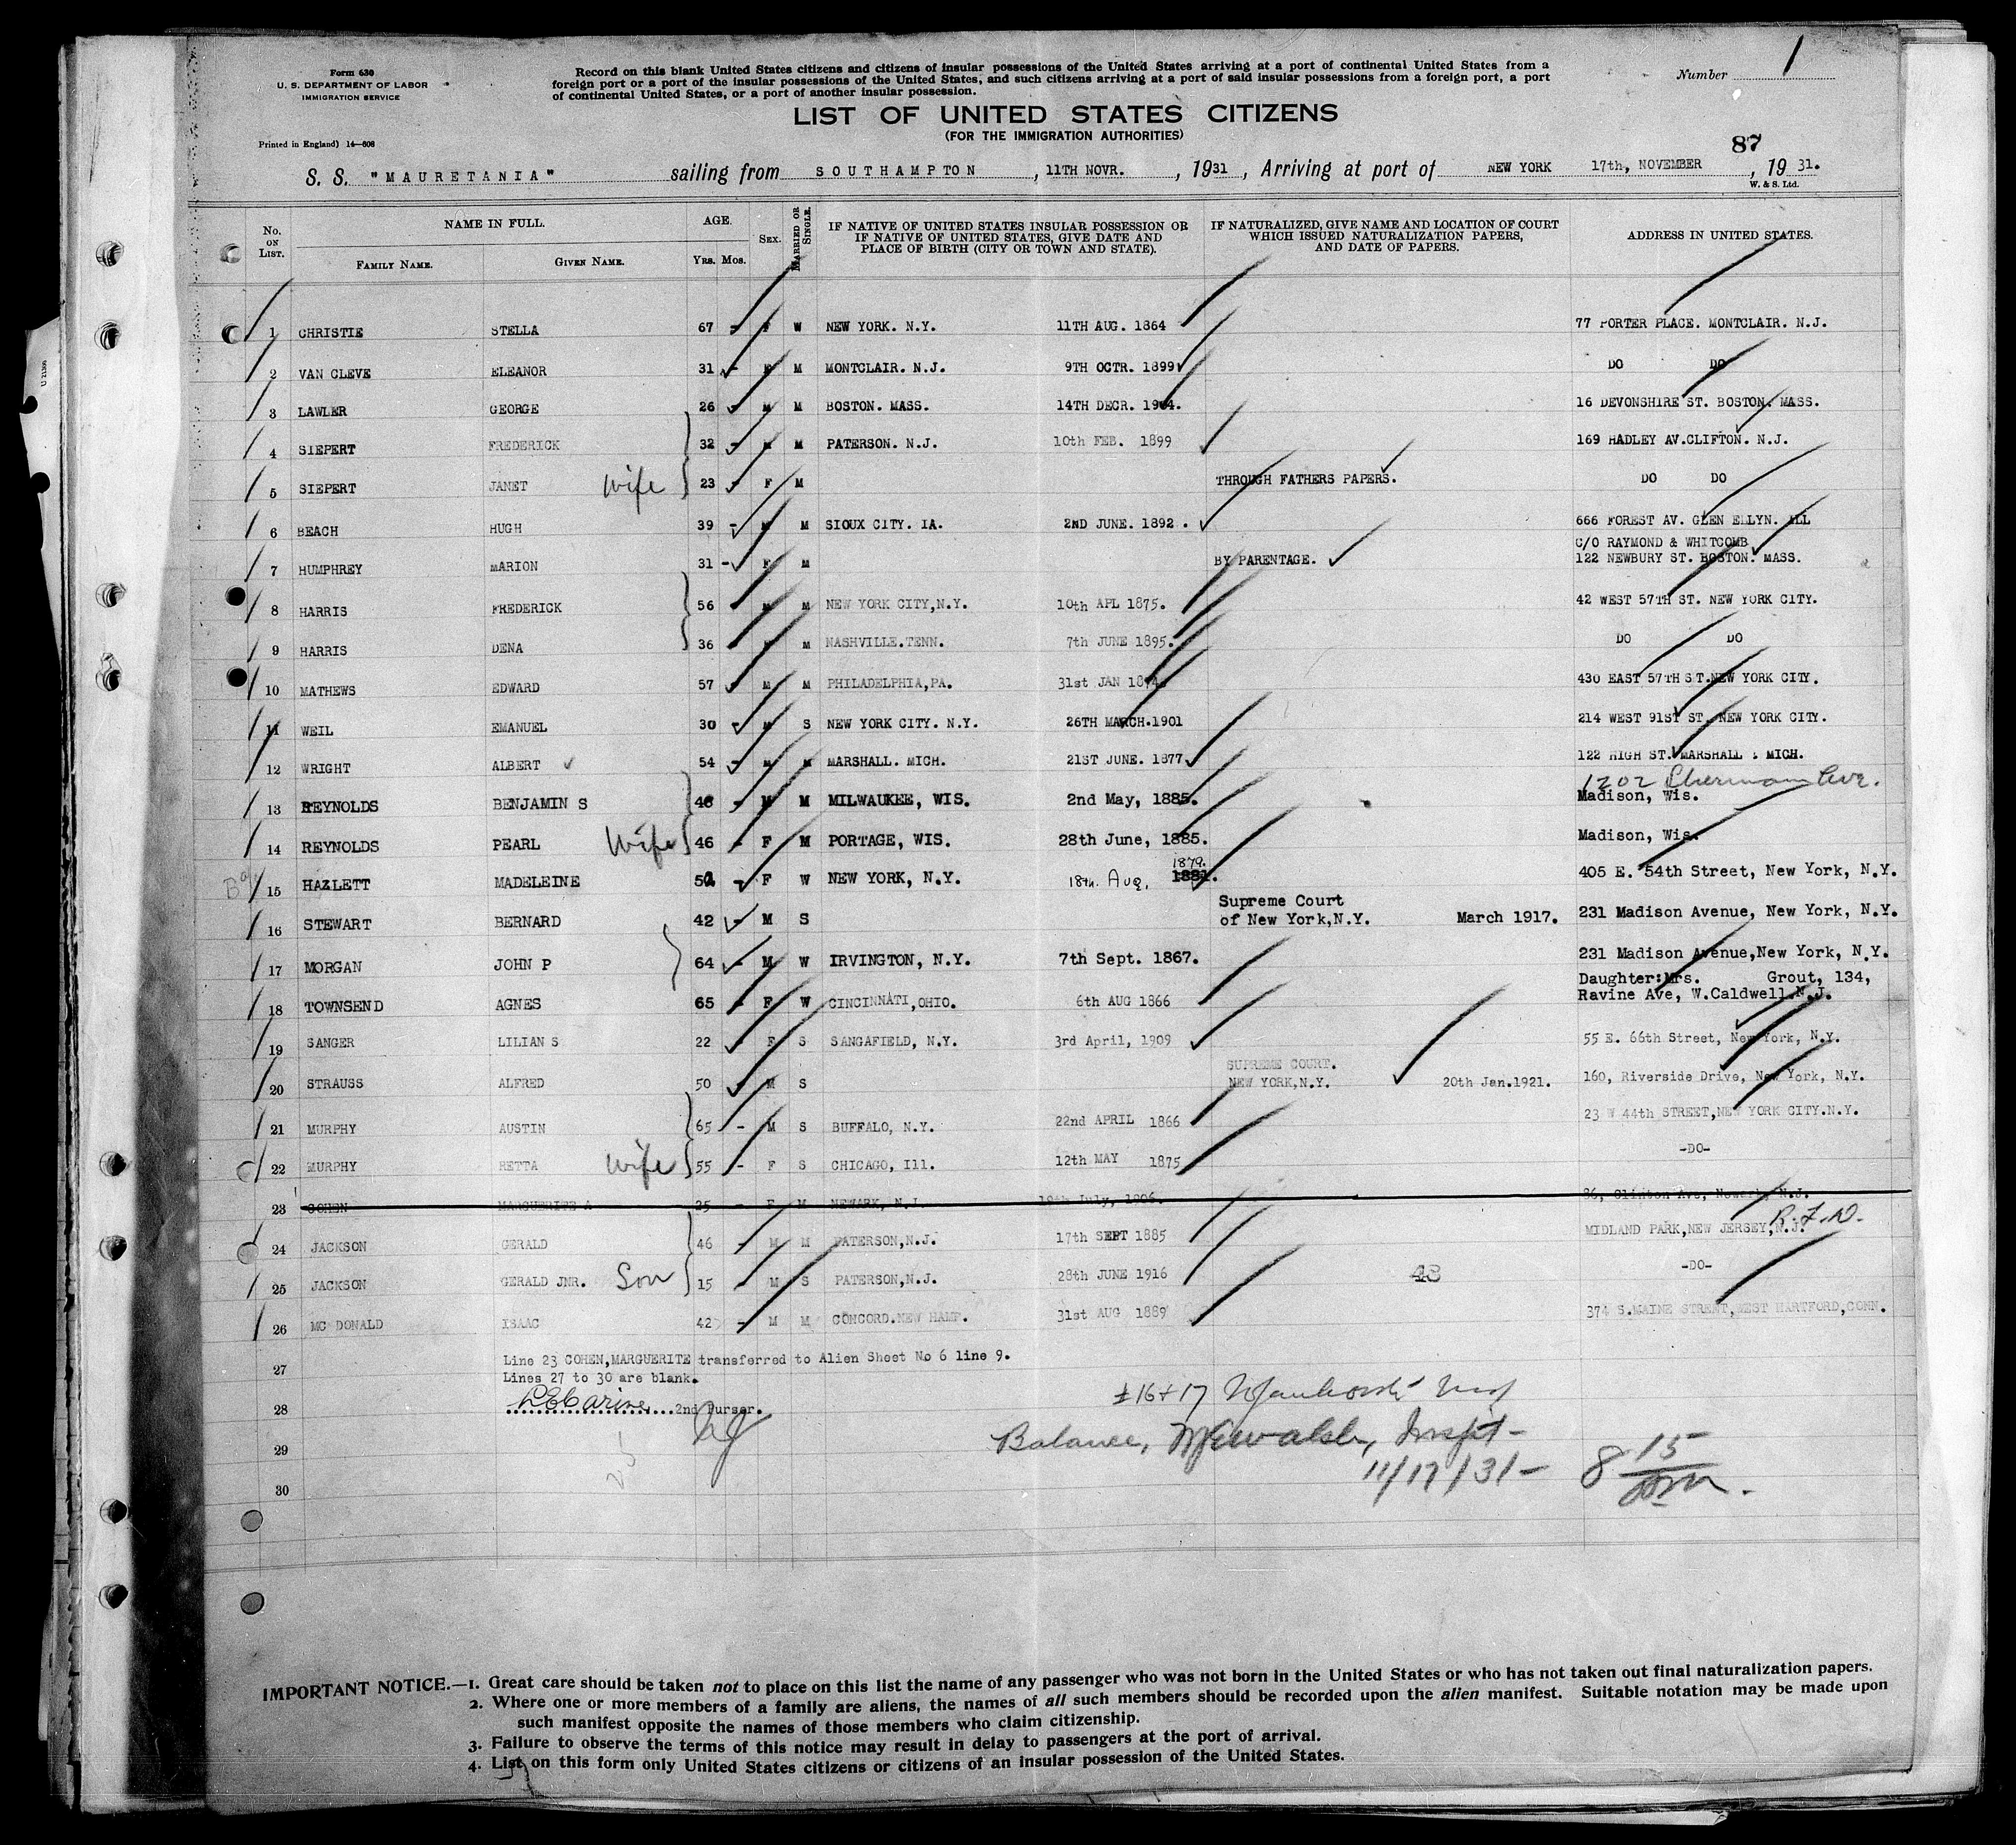 Form 630
U. S. DEPARTMENT OF LABOR
IMMIGRATION SERVICE
Printed in England) 14—608
Record on this blank United States citizens and citizens of insular possessions of the United States arriving at a port of continental United States from a
foreign port or a port of the insular possessions of the United States, and such citizens arriving at a port of said insular possessions from a foreign port, a port
of continental United States, or a port of another insular possession.
Number 1
LIST OF UNITED STATES CITIZENS
(FOR THE IMMIGRATION AUTHORITIES)
87
S. S. "MAURETANIA" sailing from SOUTHAMPTON, 11TH NOVR., 1931, Arriving at port of NEW YORK 17th, NOVEMBER, 1931.
W. & S. Ltd.
No. ON LIST. NAME IN FULL. FAMILY NAME. GIVEN NAME. AGE. YRS. MOS. SEX. MARRIED OR SINGLE. IF NATIVE OF UNITED STATES INSULAR POSSESSION OR IF NATIVE OF UNITED STATES, GIVE DATE AND PLACE OF BIRTH (CITY OR TOWN AND STATE). IF NATURALIZED, GIVE NAME AND LOCATION OF COURT WHICH ISSUED NATURALIZATION PAPERS, AND DATE OF PAPERS. ADDRESS IN UNITED STATES.
1 CHRISTIE STELLA 67 - F W NEW YORK. N.Y. 11TH AUG. 1864 77 PORTER PLACE. MONTCLAIR. N.J.
2 VAN CLEVE ELEANOR 31 - F M MONTCLAIR. N.J. 9TH OCTR. 1899 DO DO
3 LAWLER GEORGE 26 - M M BOSTON. MASS. 14TH DECR. 1904. 16 DEVONSHIRE ST. BOSTON. MASS.
4 SIEPERT FREDERICK 32 - M M PATERSON. N.J. 10th FEB. 1899 169 HADLEY AV.CLIFTON. N.J.
5 SIEPERT JANET Wife 23 - F M THROUGH FATHERS PAPERS. DO DO
6 BEACH HUGH 39 - M M SIOUX CITY. IA. 2ND JUNE. 1892. 666 FOREST AV. GLEN ELLYN. ILL
C/O RAYMOND & WHITCOMB
7 HUMPHREY MARION 31 - F M BY PARENTAGE. 122 NEWBURY ST. BOSTON. MASS.
8 HARRIS FREDERICK 56 M M NEW YORK CITY,N.Y. 10th APL 1875. 42 WEST 57TH ST. NEW YORK CITY.
9 HARRIS DENA 36 F M NASHVILLE.TENN. 7th JUNE 1895. DO DO
10 MATHEWS EDWARD 57 M M PHILADELPHIA,PA. 31st JAN 1874. 430 EAST 57TH ST.NEW YORK CITY.
11 WEIL EMANUEL 30 - M S NEW YORK CITY. N.Y. 26TH MARCH.1901 214 WEST 91ST ST. NEW YORK CITY.
12 WRIGHT ALBERT 54 - M M MARSHALL. MICH. 21ST JUNE. 1877 122 HIGH ST. MARSHALL. MICH.
1202 Sherman Ave.
13 REYNOLDS BENJAMIN S 46 - M M MILWAUKEE, WIS. 2nd May, 1885. Madison, Wis.
14 REYNOLDS PEARL Wife 46 - F M PORTAGE, WIS. 28th June, 1885. Madison, Wis.
15 HAZLETT MADELEINE 52 - F W NEW YORK, N.Y. 18th. Aug. 1879. 1881. 405 E. 54th Street, New York, N.Y.
Supreme Court
16 STEWART BERNARD 42 - M S of New York,N.Y. March 1917. 231 Madison Avenue, New York, N.Y.
17 MORGAN JOHN P 64 - M W IRVINGTON, N.Y. 7th Sept. 1867. 231 Madison Avenue,New York, N.Y.
Daughter:Mrs. Grout, 134,
18 TOWNSEND AGNES 65 - F W CINCINNATI,OHIO. 6th AUG 1866 Ravine Ave, W.Caldwell.N.J.
19 SANGER LILIAN S 22 - F S SANGAFIELD, N.Y. 3rd April, 1909 55 E. 66th Street, New York, N.Y.
SUPREME COURT.
20 STRAUSS ALFRED 50 - M S NEW YORK,N.Y. 20th Jan.1921. 160, Riverside Drive, New York, N.Y.
21 MURPHY AUSTIN 65 - M S BUFFALO, N.Y. 22nd APRIL 1866 23 W 44th STREET,NEW YORK CITY.N.Y.
22 MURPHY RETTA Wife 55 - F S CHICAGO, Ill. 12th MAY 1875 -DO-
23 COHEN MARGUERITE A 25 - F M NEWARK, N.J. 19th July, 1906. 86, Clinton Ave, Newark, N.J.
R.F.D.
24 JACKSON GERALD 46 - M M PATERSON,N.J. 17th SEPT 1885 MIDLAND PARK,NEW JERSEY,N.J.
25 JACKSON GERALD JNR. Son 15 - M S PATERSON,N.J. 28th JUNE 1916 43 -DO-
26 MC DONALD ISAAC 42 - M M CONCORD.NEW HAMP. 31st AUG 1889 374 S.MAINE STREET,WEST HARTFORD,CONN.
27 Line 23 COHEN,MARGUERITE transferred to Alien Sheet No 6 line 9.
Lines 27 to 30 are blank.
28 2nd Purser. 16+17
29 Balance, Inspt-
11/17/31- 8 15
30
IMPORTANT NOTICE.—1. Great care should be taken not to place on this list the name of any passenger who was not born in the United States or who has not taken out final naturalization papers.
2. Where one or more members of a family are aliens, the names of all such members should be recorded upon the alien manifest. Suitable notation may be made upon
such manifest opposite the names of those members who claim citizenship.
3. Failure to observe the terms of this notice may result in delay to passengers at the port of arrival.
4. List on this form only United States citizens or citizens of an insular possession of the United States.